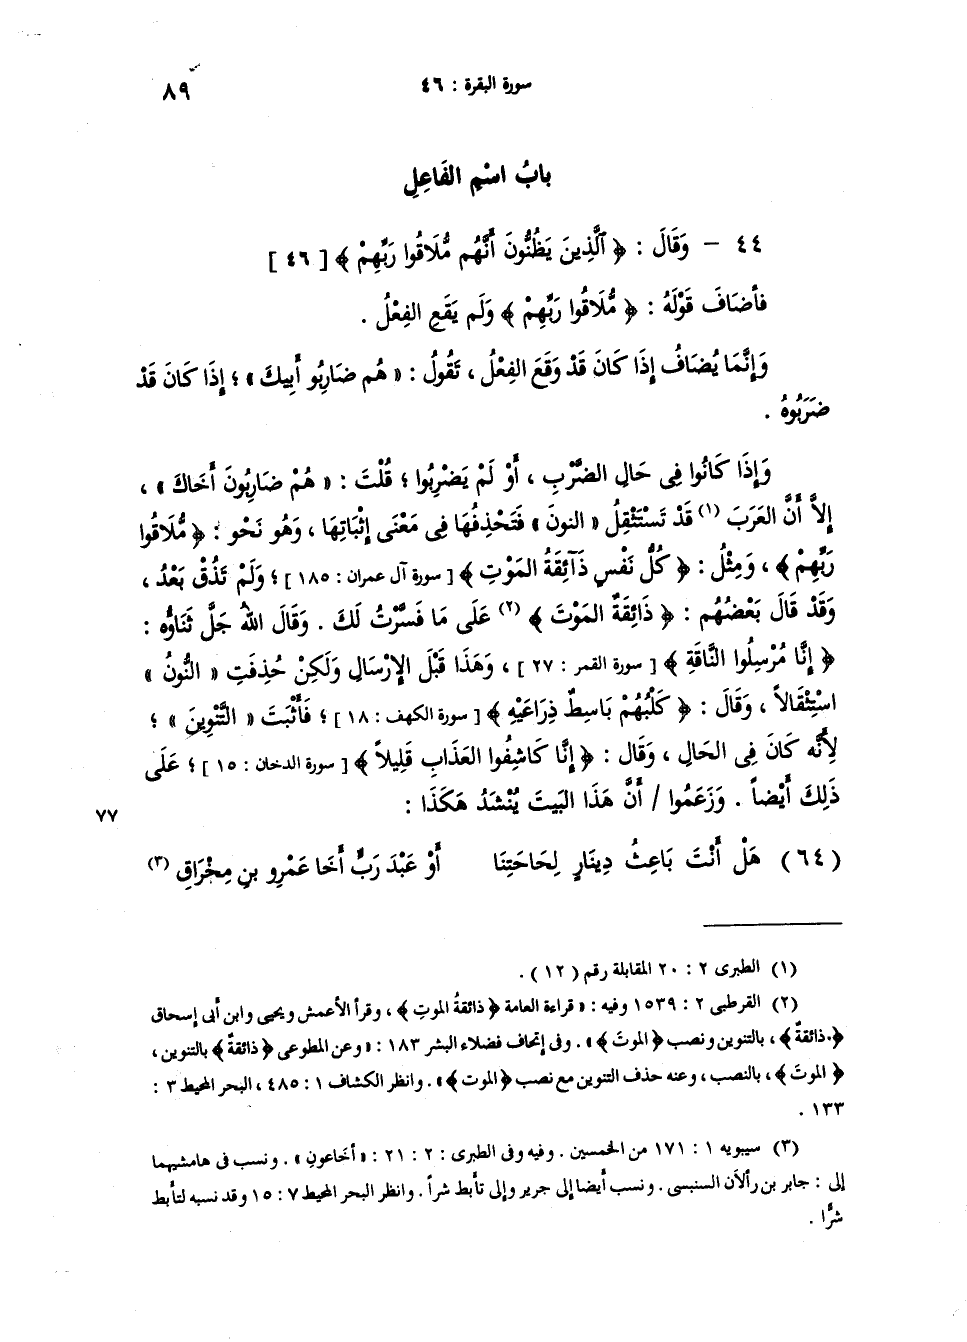 سورة البقرة : ٤٦
٨٩
بابُ اسْمِ الفَاعِلِ
٤٤ – وَقَالَ : ﴿ ٱلَّذِينَ يَظُنُّونَ أَنَّهُم مُّلَاقُوا رَبِّهِمْ ﴾ [ ٤٦ ]
فأضَافَ قَوْلَهُ : ﴿ مُّلَاقُوا رَبِّهِمْ ﴾ وَلَم يَقَعِ الفِعْلُ .
وَإِنَّمَا يُضَافُ إِذَا كَانَ قَدْ وَقَعَ الفِعْلُ ، تَقُولُ : « هُم ضَارِبُو أَبِيكَ » ؛ إِذَا كَانَ قَدْ
ضَرَبُوهُ .
وَإِذَا كَانُوا فِى حَالِ الضَّرْبِ ، أَوْ لَمْ يَضْرِبُوا ؛ قُلْتَ : « هُمْ ضَارِبُونَ أَخَاكَ » ،
إِلاَّ أَنَّ العَرَبَ (١) قَدْ تَسْتَثْقِلُ « النونَ » فَتَحْذِفُهَا فِى مَعْنَى إِثْبَاتِهَا ، وَهُو نَحْو : ﴿ مُّلَاقُوا
رَبِّهِمْ ﴾ ، وَمِثْلُ : ﴿ كُلُّ نَفْسٍ ذَآئِقَةُ المَوْتِ ﴾ [ سورة آل عمران : ١٨٥ ] ؛ وَلَمْ تَذُقْ بَعْدُ ،
وَقَدْ قَالَ بَعْضُهُم : ﴿ ذَائِقَةٌ المَوْتَ ﴾ (٢) عَلَى مَا فَسَّرْتُ لَكَ . وَقَالَ اللهُ جَلَّ ثَنَاؤُه :
﴿ إِنَّا مُرْسِلُوا النَّاقَةِ ﴾ [ سورة القمر : ٢٧ ] ، وَهَذَا قَبْلَ الإِرْسَالِ وَلَكِنْ حُذِفَتِ « النُّونُ »
اسْتِثْقَالاً ، وَقَالَ : ﴿ كَلْبُهُمْ بَاسِطٌ ذِرَاعَيْهِ ﴾ [ سورة الكهف : ١٨ ] ؛ فَأَثْبَتَ « التَّنْوِينَ » ؛
لِأَنَّه كَانَ فِى الحَالِ ، وَقَال : ﴿ إِنَّا كَاشِفُوا العَذَابِ قَلِيلاً ﴾ [ سورة الدخان : ١٥ ] ؛ عَلَى
ذَلِكَ أَيْضاً . وَزَعَمُوا / أَنَّ هَذَا البَيتَ يُنْشَدُ هَكَذَا :
٧٧
(٦٤) هَلْ أَنْتَ بَاعِثُ دِينَارٍ لِحَاحَتِنَا أَوْ عَبْدَ رَبٍّ أَخَا عَمْرِو بنِ مِخْرَاقِ (٣)
(١) الطبرى ٢ : ٢٠ المقابلة رقم ( ١٢ ) .
(٢) القرطبى ٢ : ١٥٣٩ وفيه : « قراءة العامة ﴿ ذائقةُ الموتِ ﴾ ، وقرأ الأعمش ويحيى وابن أبى إسحاق
﴿ ذائقةٌ ﴾ ، بالتنوين ونصب ﴿ الموتَ ﴾» . وفى إتحاف فضلاء البشر ١٨٣ : « وعن المطوعى ﴿ ذائقةٌ ﴾ بالتنوين ،
﴿ الموتَ ﴾ ، بالنصب ، وعنه حذف التنوين مع نصب ﴿ الموت ﴾» . وانظر الكشاف ١ : ٤٨٥ ، البحر المحيط ٣ :
١٣٣ .
(٣) سيبويه ١ : ١٧١ من الخمسين . وفيه وفى الطبرى : ٢ : ٢١ : « أخاعونِ » . ونسب فى هامشيهما
إلى : جابر بن رألاَن السنبسى . ونسب أيضا إلى جرير وإلى تأبط شراً . وانظر البحر المحيط ٧ : ١٥ وقد نسبه لتأبط
شرًّا .